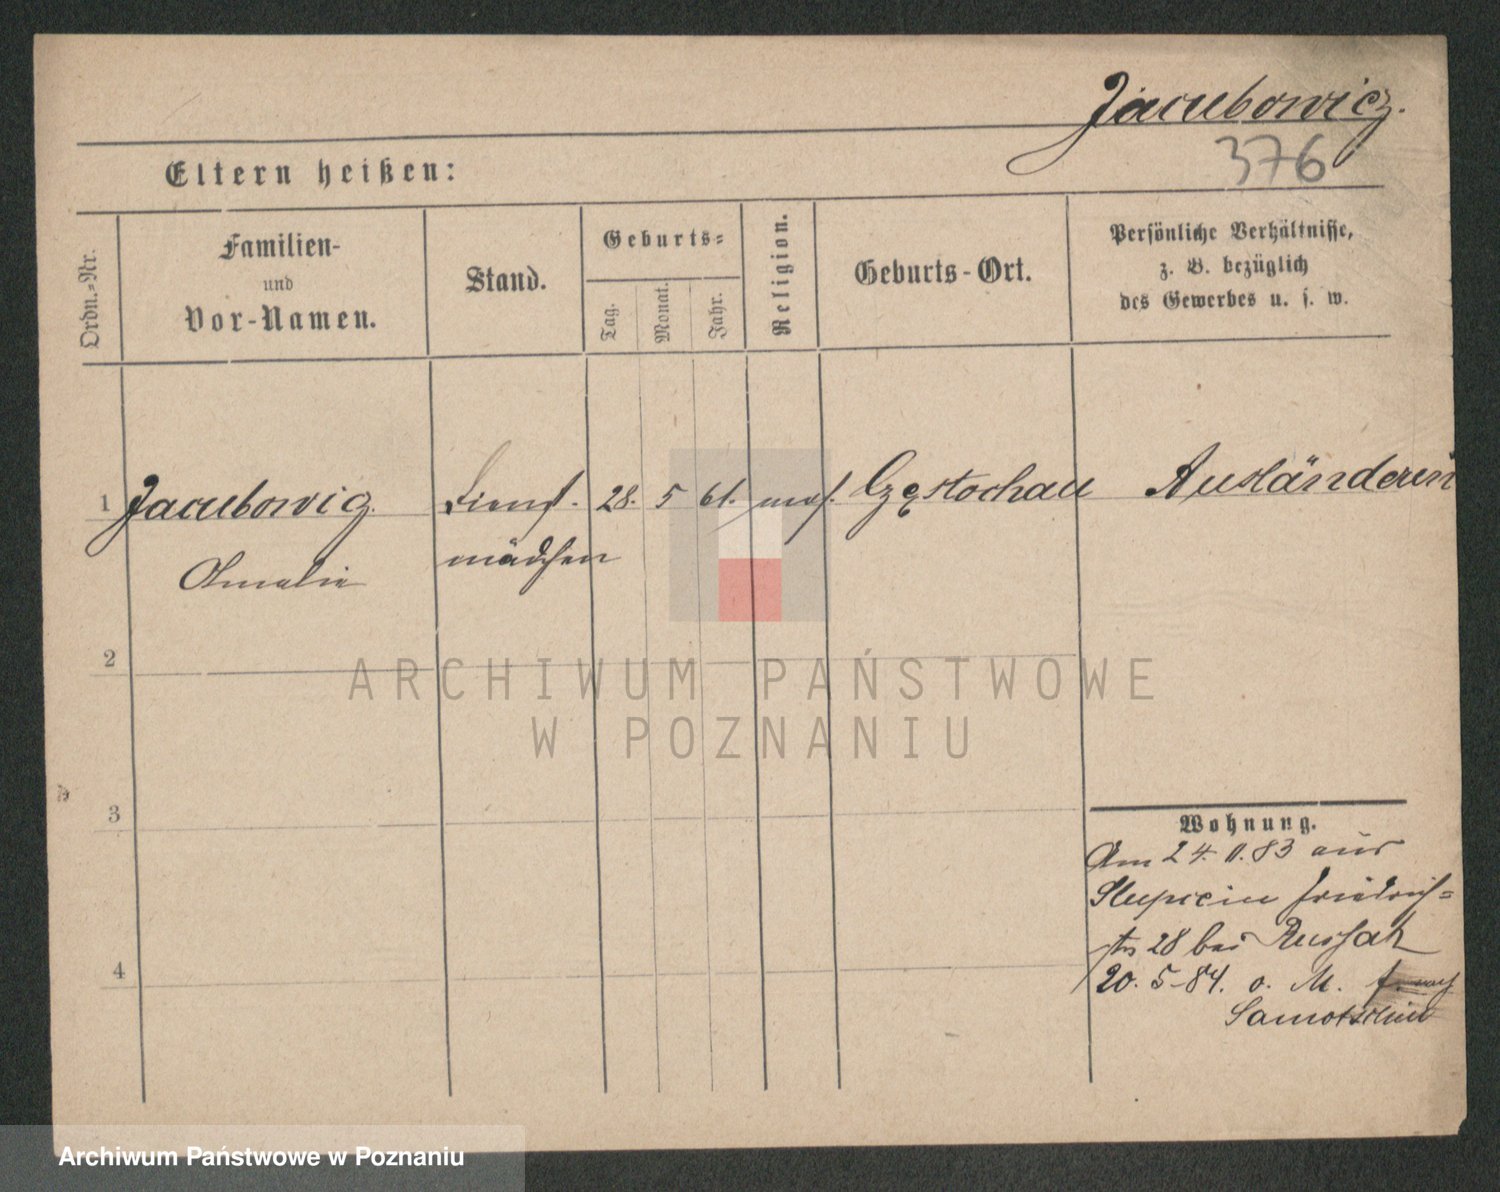 Jacubowicz.
376
Eltern heißen:
Ordn.-Nr.
Familien-
und
Vor-Namen.
Stand.
Geburts-
Tag.
Monat.
Jahr.
Religion.
Geburts-Ort.
Persönliche Verhältnisse,
z. B. bezüglich
des Gewerbes u. s. w.
1 Jacubowicz. Dienst- 28. 5 61. mos. Częstochau Ausländerin
Amalie mädchen
2
3
4
Wohnung.
Am 24. 11. 83 aus
Friedrich=
28 bei Russak
20. 5-84. o. M. nach
Samotschin
ARCHIWUM PAŃSTWOWE
W POZNANIU
Archiwum Państwowe w Poznaniu